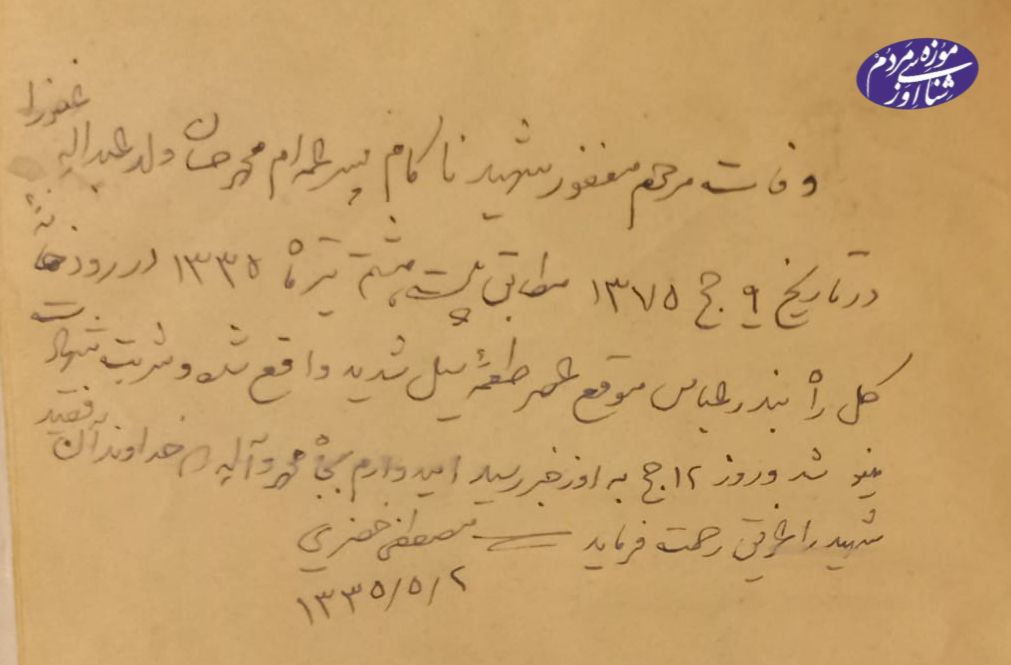 موزه‌ی مردم
شناسی اوز
وفات مرحوم مغفور شهید ناکام پسر عمه ام محمد حسان ولد عبداله
در تاریخ ۹ حج ۱۳۷۵ مطابق بیست هشتم تیر ماه ۱۳۳۵ در رودخانه
کل راه بندرعباس موقع عصر طعمهٔ سیل شدید واقع شده و شربت شهادت
شد و روز ۱۲ حج به اوز خبر رسید امیدوارم بجاه محمد و آله خداوند آن فقید
شهید را غرقی رحمت فرماید مصطفی خضری
۱۳۳۵/۵/۲